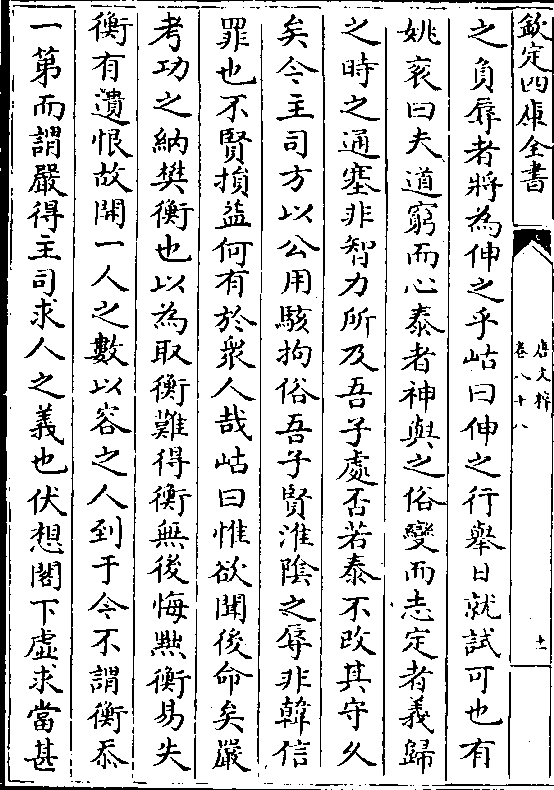 欽定四庫全書
唐文粹
卷八十八
十一
之負辱者將為伸之乎岵曰伸之行舉日就試可也有
姚衮曰夫道窮而心泰者神與之俗變而志定者義歸
之時之通塞非智力所及吾子處否若泰不改其守久
矣今主司方以公用駭拘俗吾子賢淮陰之辱非韓信
罪也不賢損益何有於衆人哉岵曰惟欲聞後命矣嚴
考功之納樊衡也以為取衡難得衡無後悔黜衡易失
衡有遺恨故開一人之數以容之人到于今不謂衡忝
一第而謂嚴得主司求人之義也伏想閣下虛求當甚